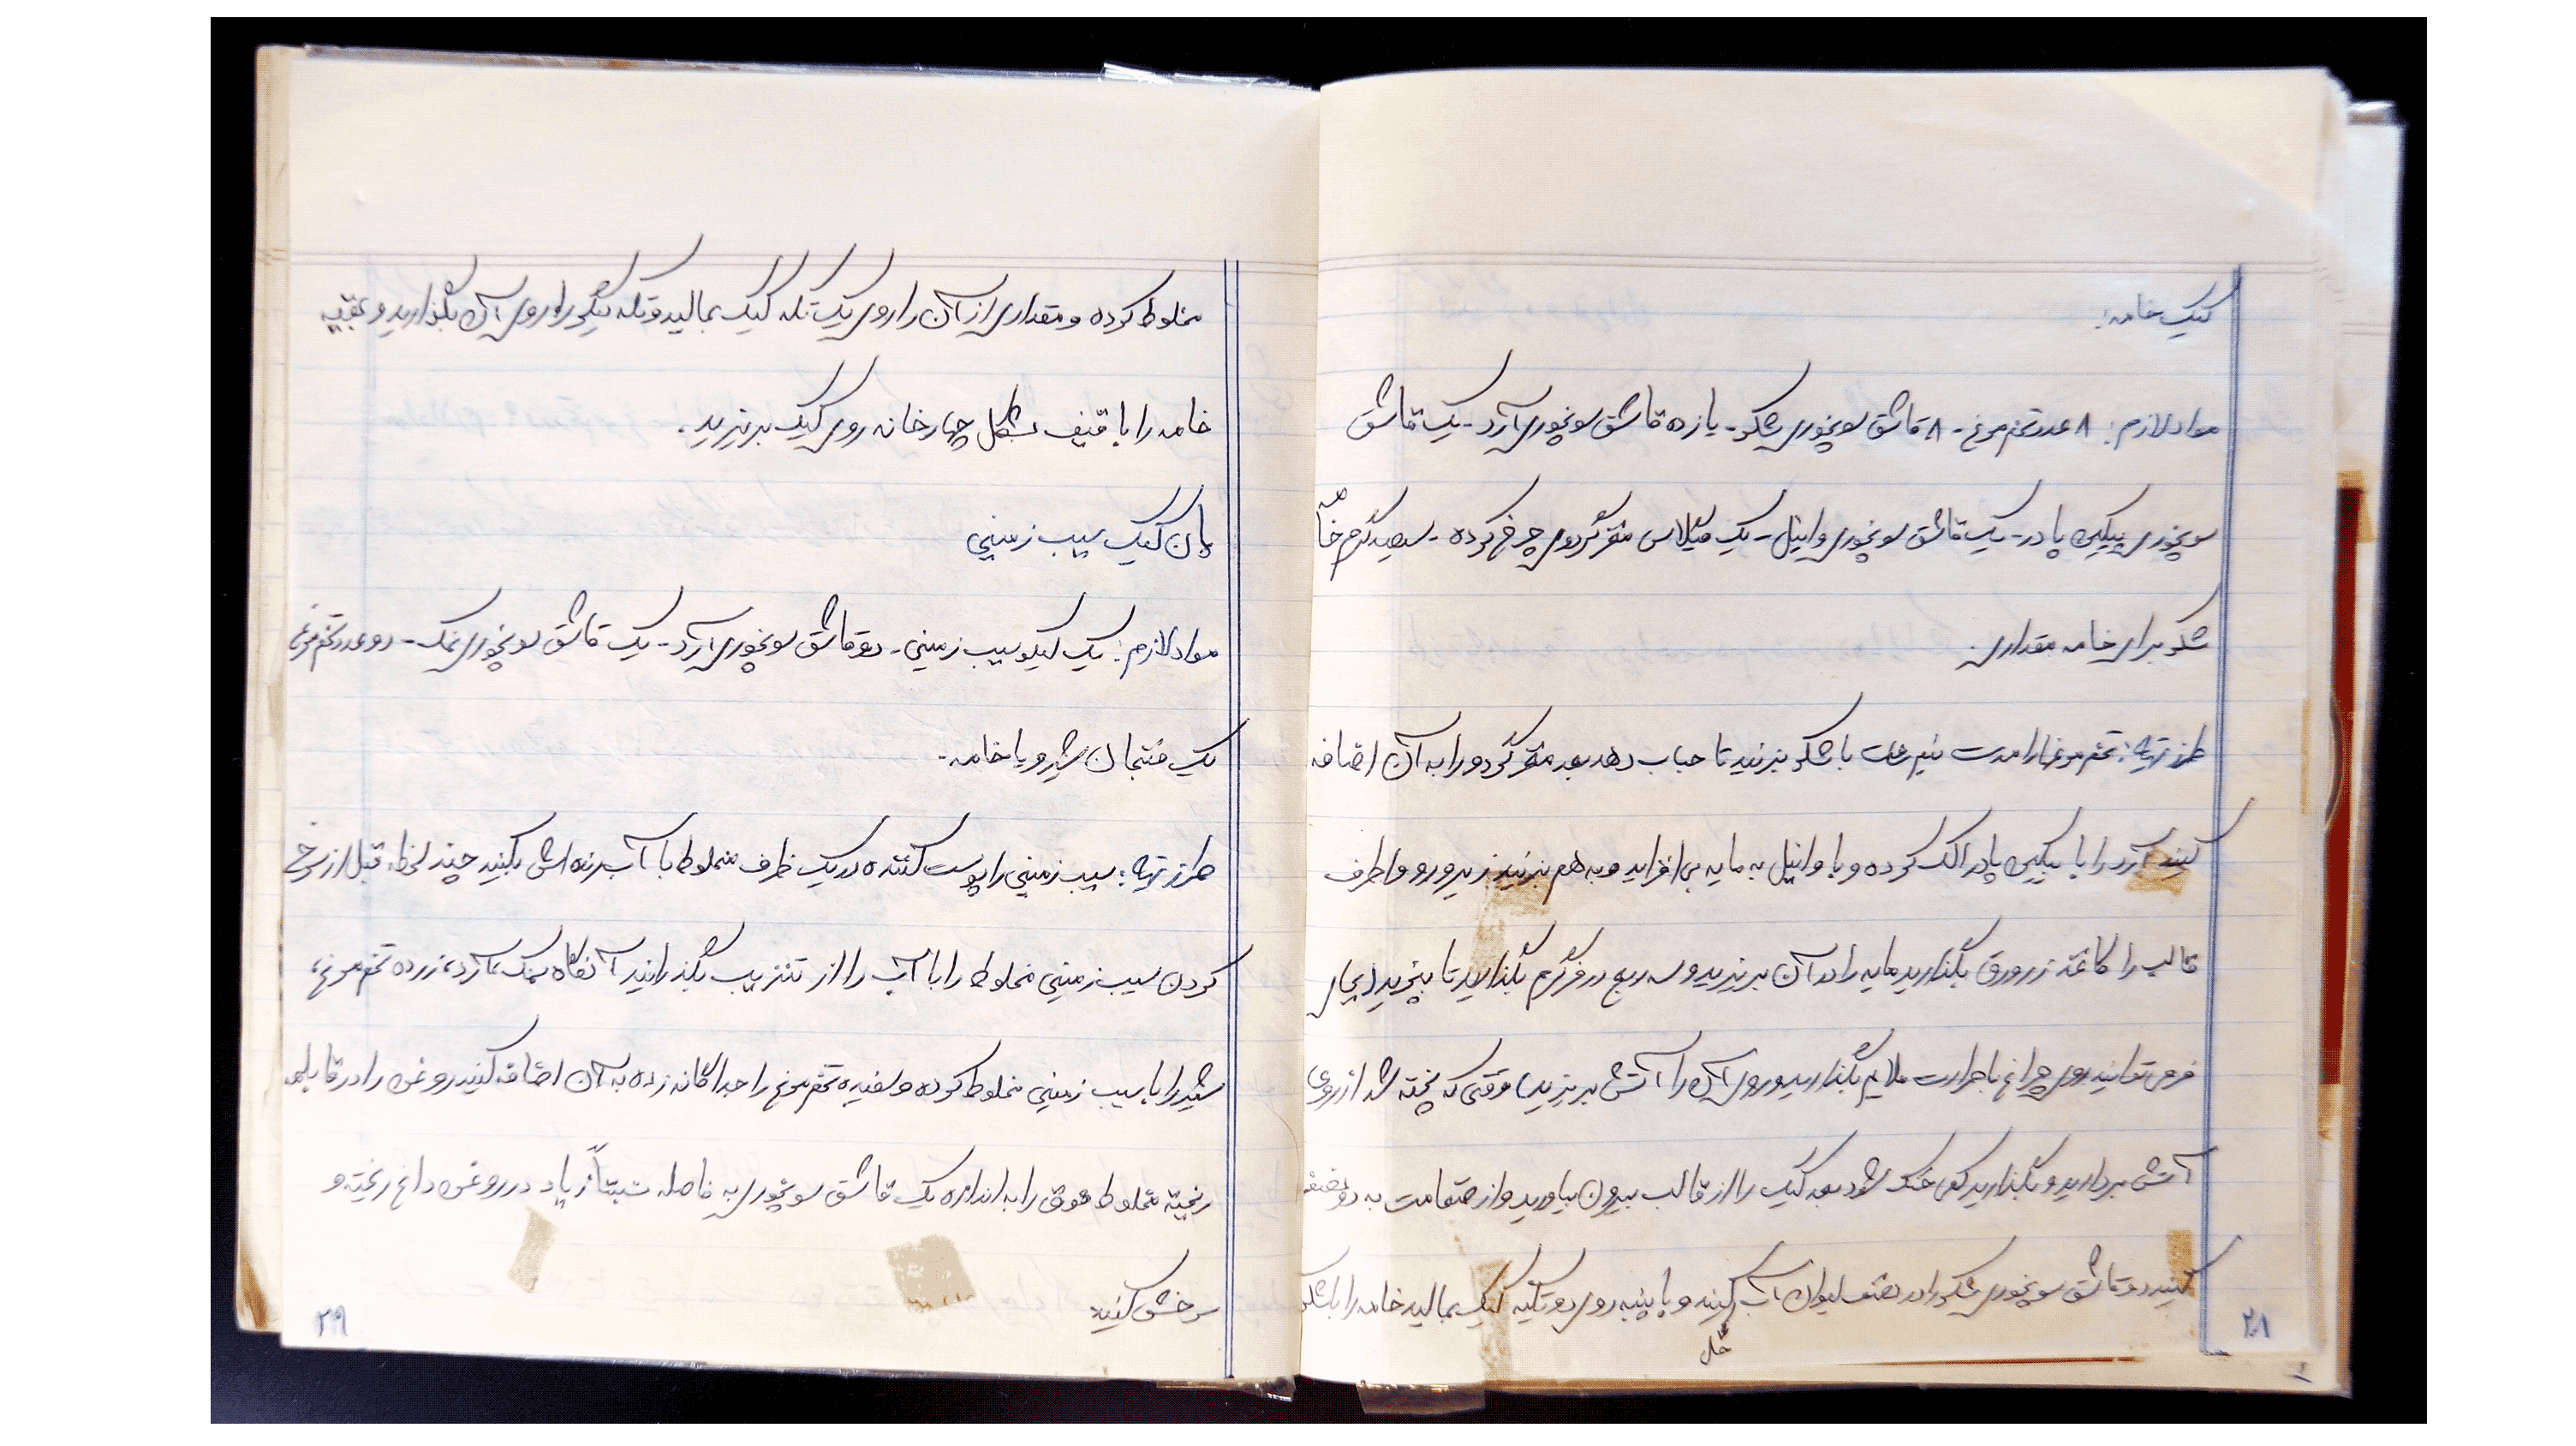 کیک خامه:
مواد لازم: ۸ عدد تخم مرغ - ۸ قاشق سوپخوری شکر - یازده قاشق سوپخوری آرد - یک قاشق
سوپخوری بیکین پادر - یک قاشق سوپخوری وانیل - یک گیلاس مغز گردوی چرخ کرده - سیصد گرم خامه
شکر برای خامه مقداری.
طرز تهیه: تخم مرغها را مدت نیم ساعت با شکر بزنید تا حباب دهد بعد مغز گردو را به آن اضافه
کنید آرد را با بیکین پادر الک کرده و با وانیل به مایه بی افزاید و به هم بزنید زیر و رو و اطرف
قالب را کاغذ زرورق بگذارید مایه را در آن بریزید و سه ربع در فر گرم بگذارید تا بپزید (بجای
فر می توانید روی چراغ با حرارت ملایم بگذارید و روی آن را آتش بریزید) وقتی که پخته شد از روی
آتش بردارید و بگذارید کمی خنک شود بعد کیک را از قالب بیرون بیاورید و از ضقامت به دو نصف
کنید دو قاشق سوپخوری شکر را در نصف لیوان آب کنید و با پنبه روی دو تکیه کیک بمالید خامه را با شکر
حل
۲۸
مخلوط کرده و مقداری از آن را روی یک تکه کیک بمالید و تکه دیگر را روی آن بگذارید و بقیه
خامه را با قیف بشکل چهارخانه روی کیک بریزید.
پان کیک سیب زمینی
مواد لازم: یک کیلو سیب زمینی - دو قاشق سوپخوری آرد - یک قاشق سوپخوری نمک - دو عدد تخم مرغ
یک فنجان شیر و یا خامه -
طرز تهیه: سیب زمینی را پوست کننده در یک ظرف مخلوط با آب رنده اش بکنید چند لحظه قبل از سرخ
کردن سیب زمینی مخلوط را با آب را از تنزیب بگذرانید آنگاه نمک، آرد، زرده تخم مرغ،
شیر را با سیب زمینی مخلوط کرده و سفیده تخم مرغ را جداگانه زده به آن اضافه کنید روغن را در قابلمه
ریخته مخلوط فوق را به اندازه یک قاشق سوپخوری به فاصله نسبتاً زیاد در روغن داغ ریخته و
سرخش کنید
۲۹